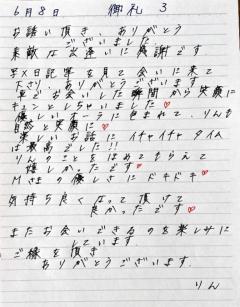 6月8日 御礼 3
お誘い頂き、ありがとう
ございました
素敵な出逢いに感謝です
写メ日記等を見て会いに来て
下さり、ありがとうございます
お会いした瞬間から笑顔に
キュンとしちゃいました♡
優しいオーラに包まれて、りんも
自然と笑顔に♡
楽しいお話に イチャイチャ タイム
は最高でした!!
りんのことをほめてもらえて
嬉しかたです♡
Mさまの優しさにドキドキ♡
気持ち良くなって頂けて
良かったです♡
またお会いできるのを楽しみに
しています
ご縁を頂き
ありがとうございます
りん